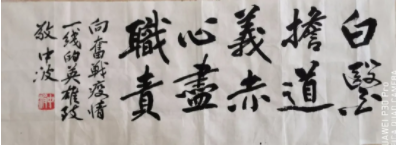 白醫
擔道
義赤
心盡
職責
向奮戰疫情
一线的英雄致
敬 中波
HUAWEI P30 Pro